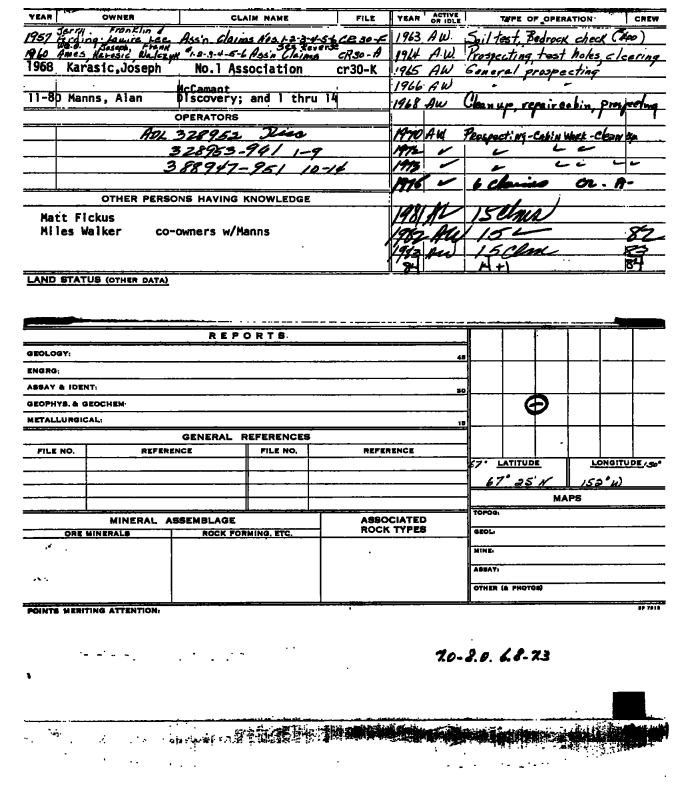 YEAR OWNER CLAIM NAME FILE YEAR ACTIVE OR IDLE TYPE OF OPERATION CREW
1957 Jerry Franklin & Lee Ass'n Claims Nos. 1-2-3-4-5-6 CR 30-F 1963 AW. Soil test, Bedrock check
1960 Ames Karasic 1-2-3-4-5-6 Ass'n Claims See Reverse CR30-A 1964 A.W. Prospecting, test holes, clearing
1968 Karasic, Joseph No.1 Association cr30-K 1965 AW General prospecting
1966 AW
11-80 Manns, Alan McCamant Discovery; and 1 thru 14 1968 AW Clean up, repair cabin, prospecting
OPERATORS
ADL 328952 1970 AW Prospecting-Cabin Work-Clean up
328953-961 1-9 1972 ✓
388947-951 10-14 1973 ✓
✓ 6 claims
OTHER PERSONS HAVING KNOWLEDGE
Matt Fickus 1981 15 clms
Miles Walker co-owners w/Manns 1982 AW 15 82
1983 AW 15 clm 83
84 84
LAND STATUS (OTHER DATA)
REPORTS
GEOLOGY: 45
ENGRG:
ASSAY & IDENT: 30
GEOPHYS. & GEOCHEM:
METALLURGICAL: 15
GENERAL REFERENCES
FILE NO. REFERENCE FILE NO. REFERENCE
67° LATITUDE LONGITUDE 150°
67° 25' N 152° W
MAPS
MINERAL ASSEMBLAGE ASSOCIATED ROCK TYPES TOPOG:
ORE MINERALS ROCK FORMING, ETC. GEOL:
MINE:
ASSAY:
OTHER (& PHOTOS)
POINTS MERITING ATTENTION:
7.0-8.0. 6.8-7.3